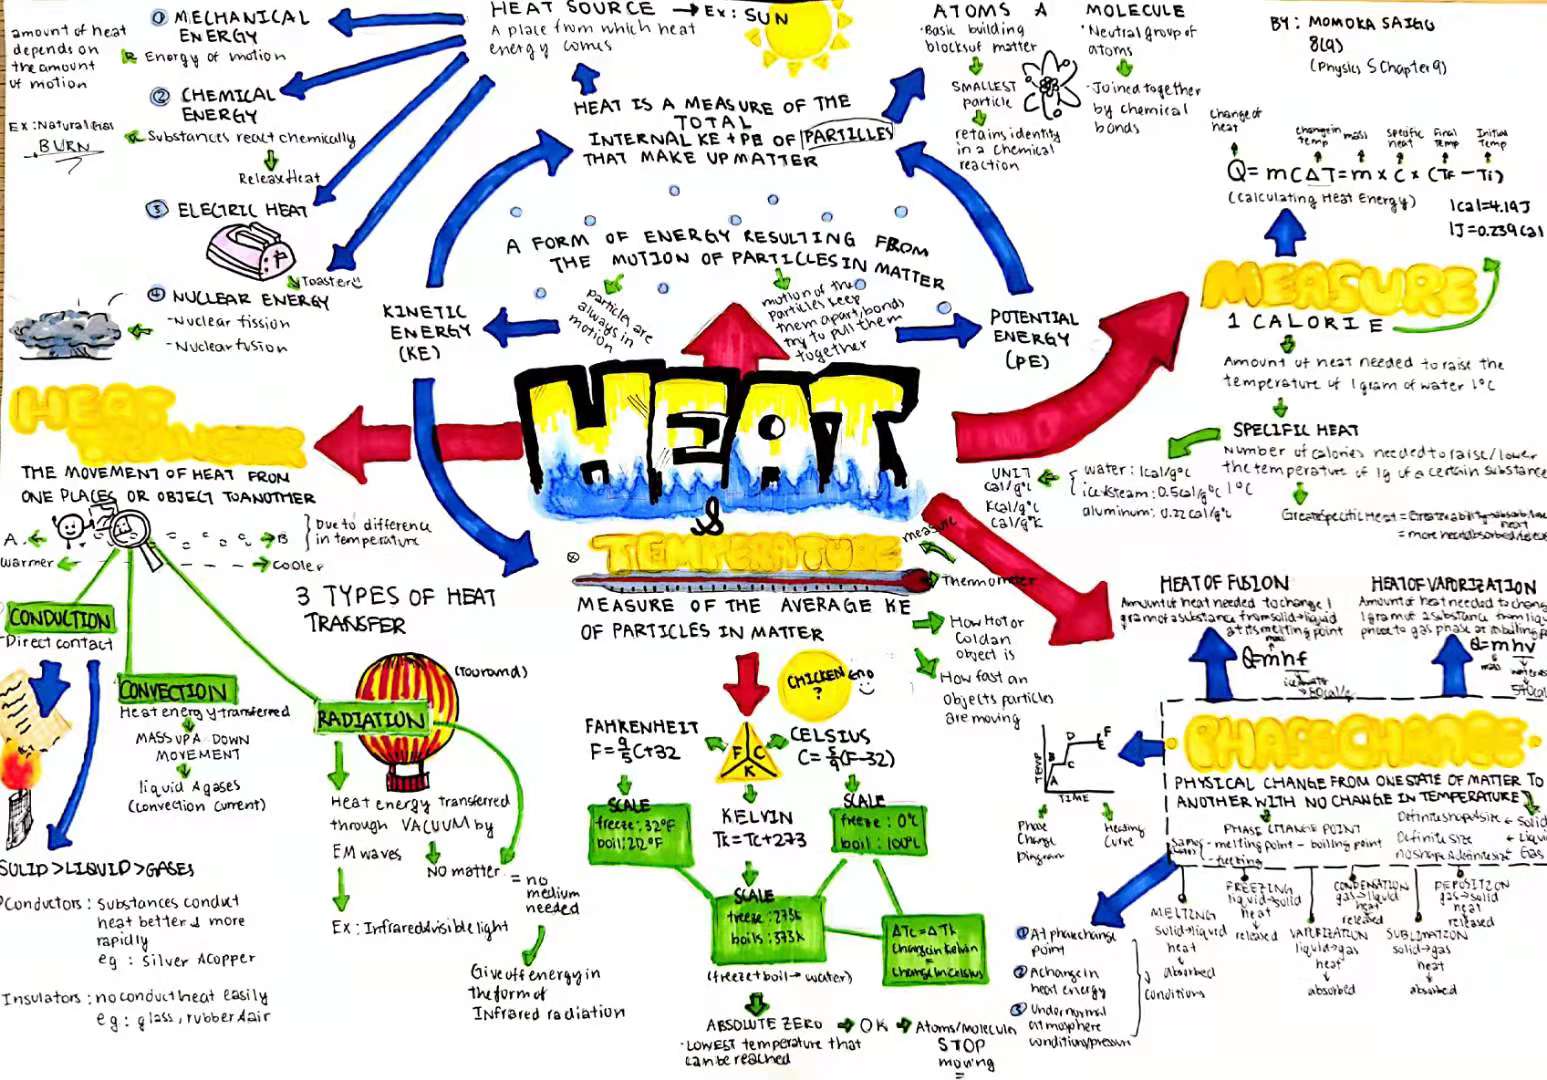 BY: MOMOKA SAIGO
8(9)
(Physics S Chapter 9)
HEAT
&
TEMPERATURE
MEASURE OF THE AVERAGE KE
OF PARTICLES IN MATTER
measure
Thermometer
How Hot or
Cold an
object is
How fast an
objects particles
are moving
A FORM OF ENERGY RESULTING FROM
THE MOTION OF PARTICLES IN MATTER
particles are
always in
motion
motion of the
particles keep
them apart/bonds
try to pull them
together
KINETIC
ENERGY
(KE)
POTENTIAL
ENERGY
(PE)
HEAT IS A MEASURE OF THE
TOTAL
INTERNAL KE + PE OF PARTICLES
THAT MAKE UP MATTER
HEAT SOURCE → Ex: SUN
A place from which heat
energy comes
① MECHANICAL
ENERGY
Energy of motion
amount of heat
depends on
the amount
of motion
② CHEMICAL
ENERGY
Substances react chemically
Release Heat
Ex: Natural Gas
BURN
③ ELECTRIC HEAT
Toaster
④ NUCLEAR ENERGY
- Nuclear fission
- Nuclear fusion
ATOMS &
· Basic building
blocks of matter
SMALLEST
particle
retains identity
in a chemical
reaction
MOLECULE
· Neutral group of
atoms
· Joined together
by chemical
bonds
change of
heat
change in
temp
mass
specific
heat
Final
Temp
Initial
Temp
Q = mCΔT = m × C × (TF − Ti)
(Calculating Heat Energy)
1cal=4.19J
1J=0.239cal
MEASURE
1 CALORIE
Amount of heat needed to raise the
temperature of 1 gram of water 1°C
SPECIFIC HEAT
Number of calories needed to raise/lower
the temperature of 1g of a certain substance
1°C
UNIT
cal/g°C
Kcal/g°C
Cal/g°K
water: 1cal/g°C
ice & steam: 0.5cal/g°C
aluminum: 0.22 cal/g°C
Greater Specific Heat = Greater ability to absorb
heat
= more heat absorbed
HEAT TRANSFER
THE MOVEMENT OF HEAT FROM
ONE PLACES OR OBJECT TO ANOTHER
A
B
Due to difference
in temperature
warmer
cooler
3 TYPES OF HEAT
TRANSFER
CONDUCTION
- Direct contact
SOLID > LIQUID > GASES
Conductors: Substances conduct
heat better & more
rapidly
eg: silver & copper
Insulators: no conduct heat easily
eg: glass, rubber & air
CONVECTION
Heat energy transferred
MASS UP & DOWN
MOVEMENT
liquid & gases
(convection current)
RADIATION
Heat energy transferred
through VACUUM by
EM waves
No matter
= no
medium
needed
Ex: Infrared & visible light
Give off energy in
the form of
Infrared radiation
CHICKEN
?
F C
K
FAHRENHEIT
F = 9/5C+32
SCALE
freeze: 32°F
boil: 212°F
CELSIUS
C = 5/9(F-32)
SCALE
freeze: 0°C
boil: 100°C
KELVIN
Tk = Tc+273
SCALE
freeze: 273k
boils: 373k
(freeze + boil → water)
ΔTc = ΔTk
Change in Kelvin
=
Change in Celsius
ABSOLUTE ZERO → 0K → Atoms/Molecules
STOP
moving
· LOWEST temperature that
can be reached
HEAT OF FUSION
Amount of heat needed to change 1
gram of a substance from solid → liquid
at its melting point
Q=mhf
HEAT OF VAPORIZATION
Amount of heat needed to change
1 gram of a substance from liquid
phase to gas phase at its boiling
Q=mhv
PHASE CHANGE
PHYSICAL CHANGE FROM ONE STATE OF MATTER TO
ANOTHER WITH NO CHANGE IN TEMPERATURE
PHASE CHANGE POINT
- melting point - boiling point
- freezing
Definite shape & size ← Solid
Definite size ← Liquid
no shape & definite size ← Gas
TEMP
TIME
A
B
C
D
E
F
Phase
Change
Diagram
Heating
Curve
MELTING
solid → liquid
heat
absorbed
FREEZING
liquid → solid
heat
released
VAPORIZATION
liquid → gas
heat
absorbed
CONDENSATION
gas → liquid
heat
released
SUBLIMATION
solid → gas
heat
absorbed
DEPOSITION
gas → solid
heat
released
① At phase change
point
② A change in
heat energy
③ Under normal
atmosphere
condition/pressure
3
conditions